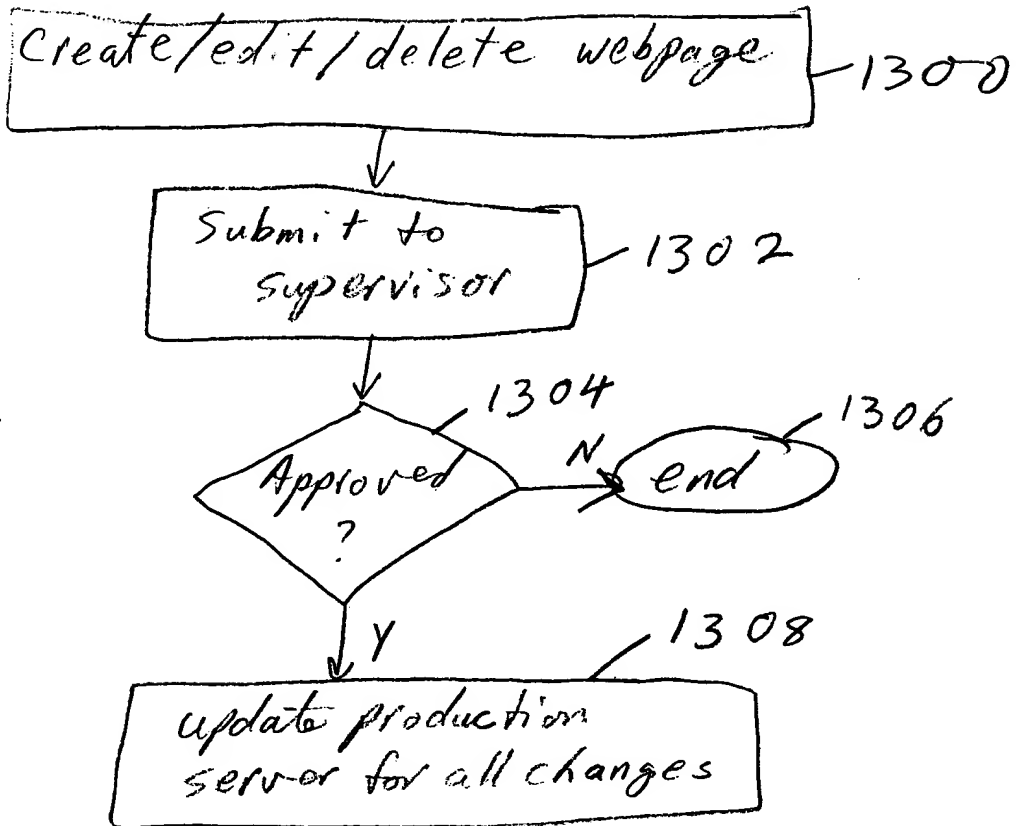 Create/edit/delete webpage
1300
Submit to
supervisor
1302
1304
Approved
?
N
end
1306
Y
1308
update production
server for all changes